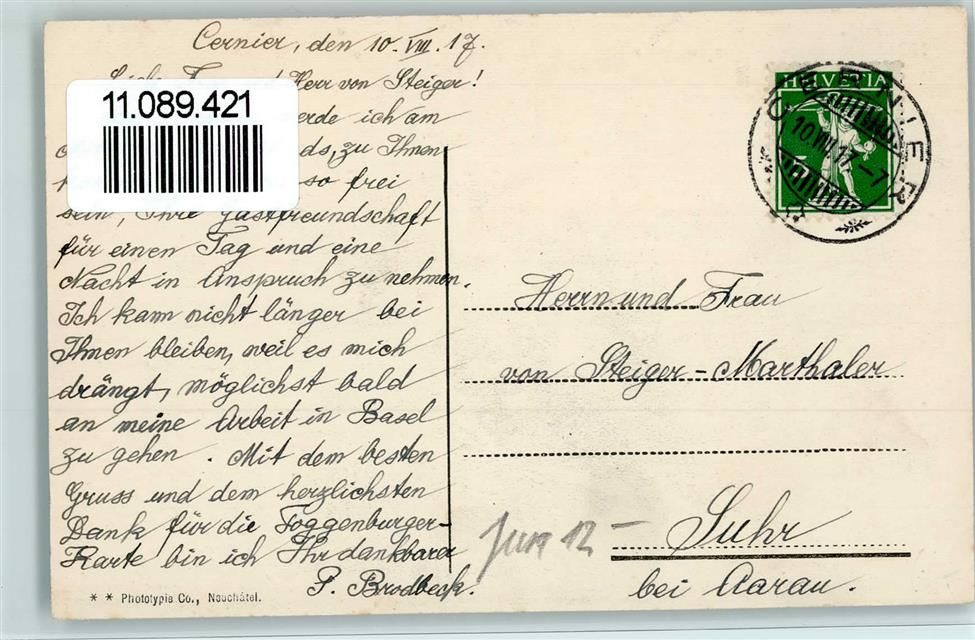 Cernier, den 10. VIII. 17.
Herr von Steiger!
11.089.421
werde ich am
zu Ihnen
so frei
sein, Ihre Gastfreundschaft
für einen Tag und eine
Nacht in Anspruch zu nehmen.
Ich kann nicht länger bei
Ihnen bleiben, weil es mich
drängt, möglichst bald
an meine Arbeit in Basel
zu gehen. Mit dem besten
Gruss und dem herzlichsten
Dank für die Toggenburger-
Karte bin ich Ihr dankbarer
P. Brodbeck.
* * Phototypie Co., Neuchâtel.
HELVETIA
CERNIER
10.VIII.17.-7
Herrn und Frau
von Steiger-Marthaler
Suhr
bei Aarau.
Jura 12-